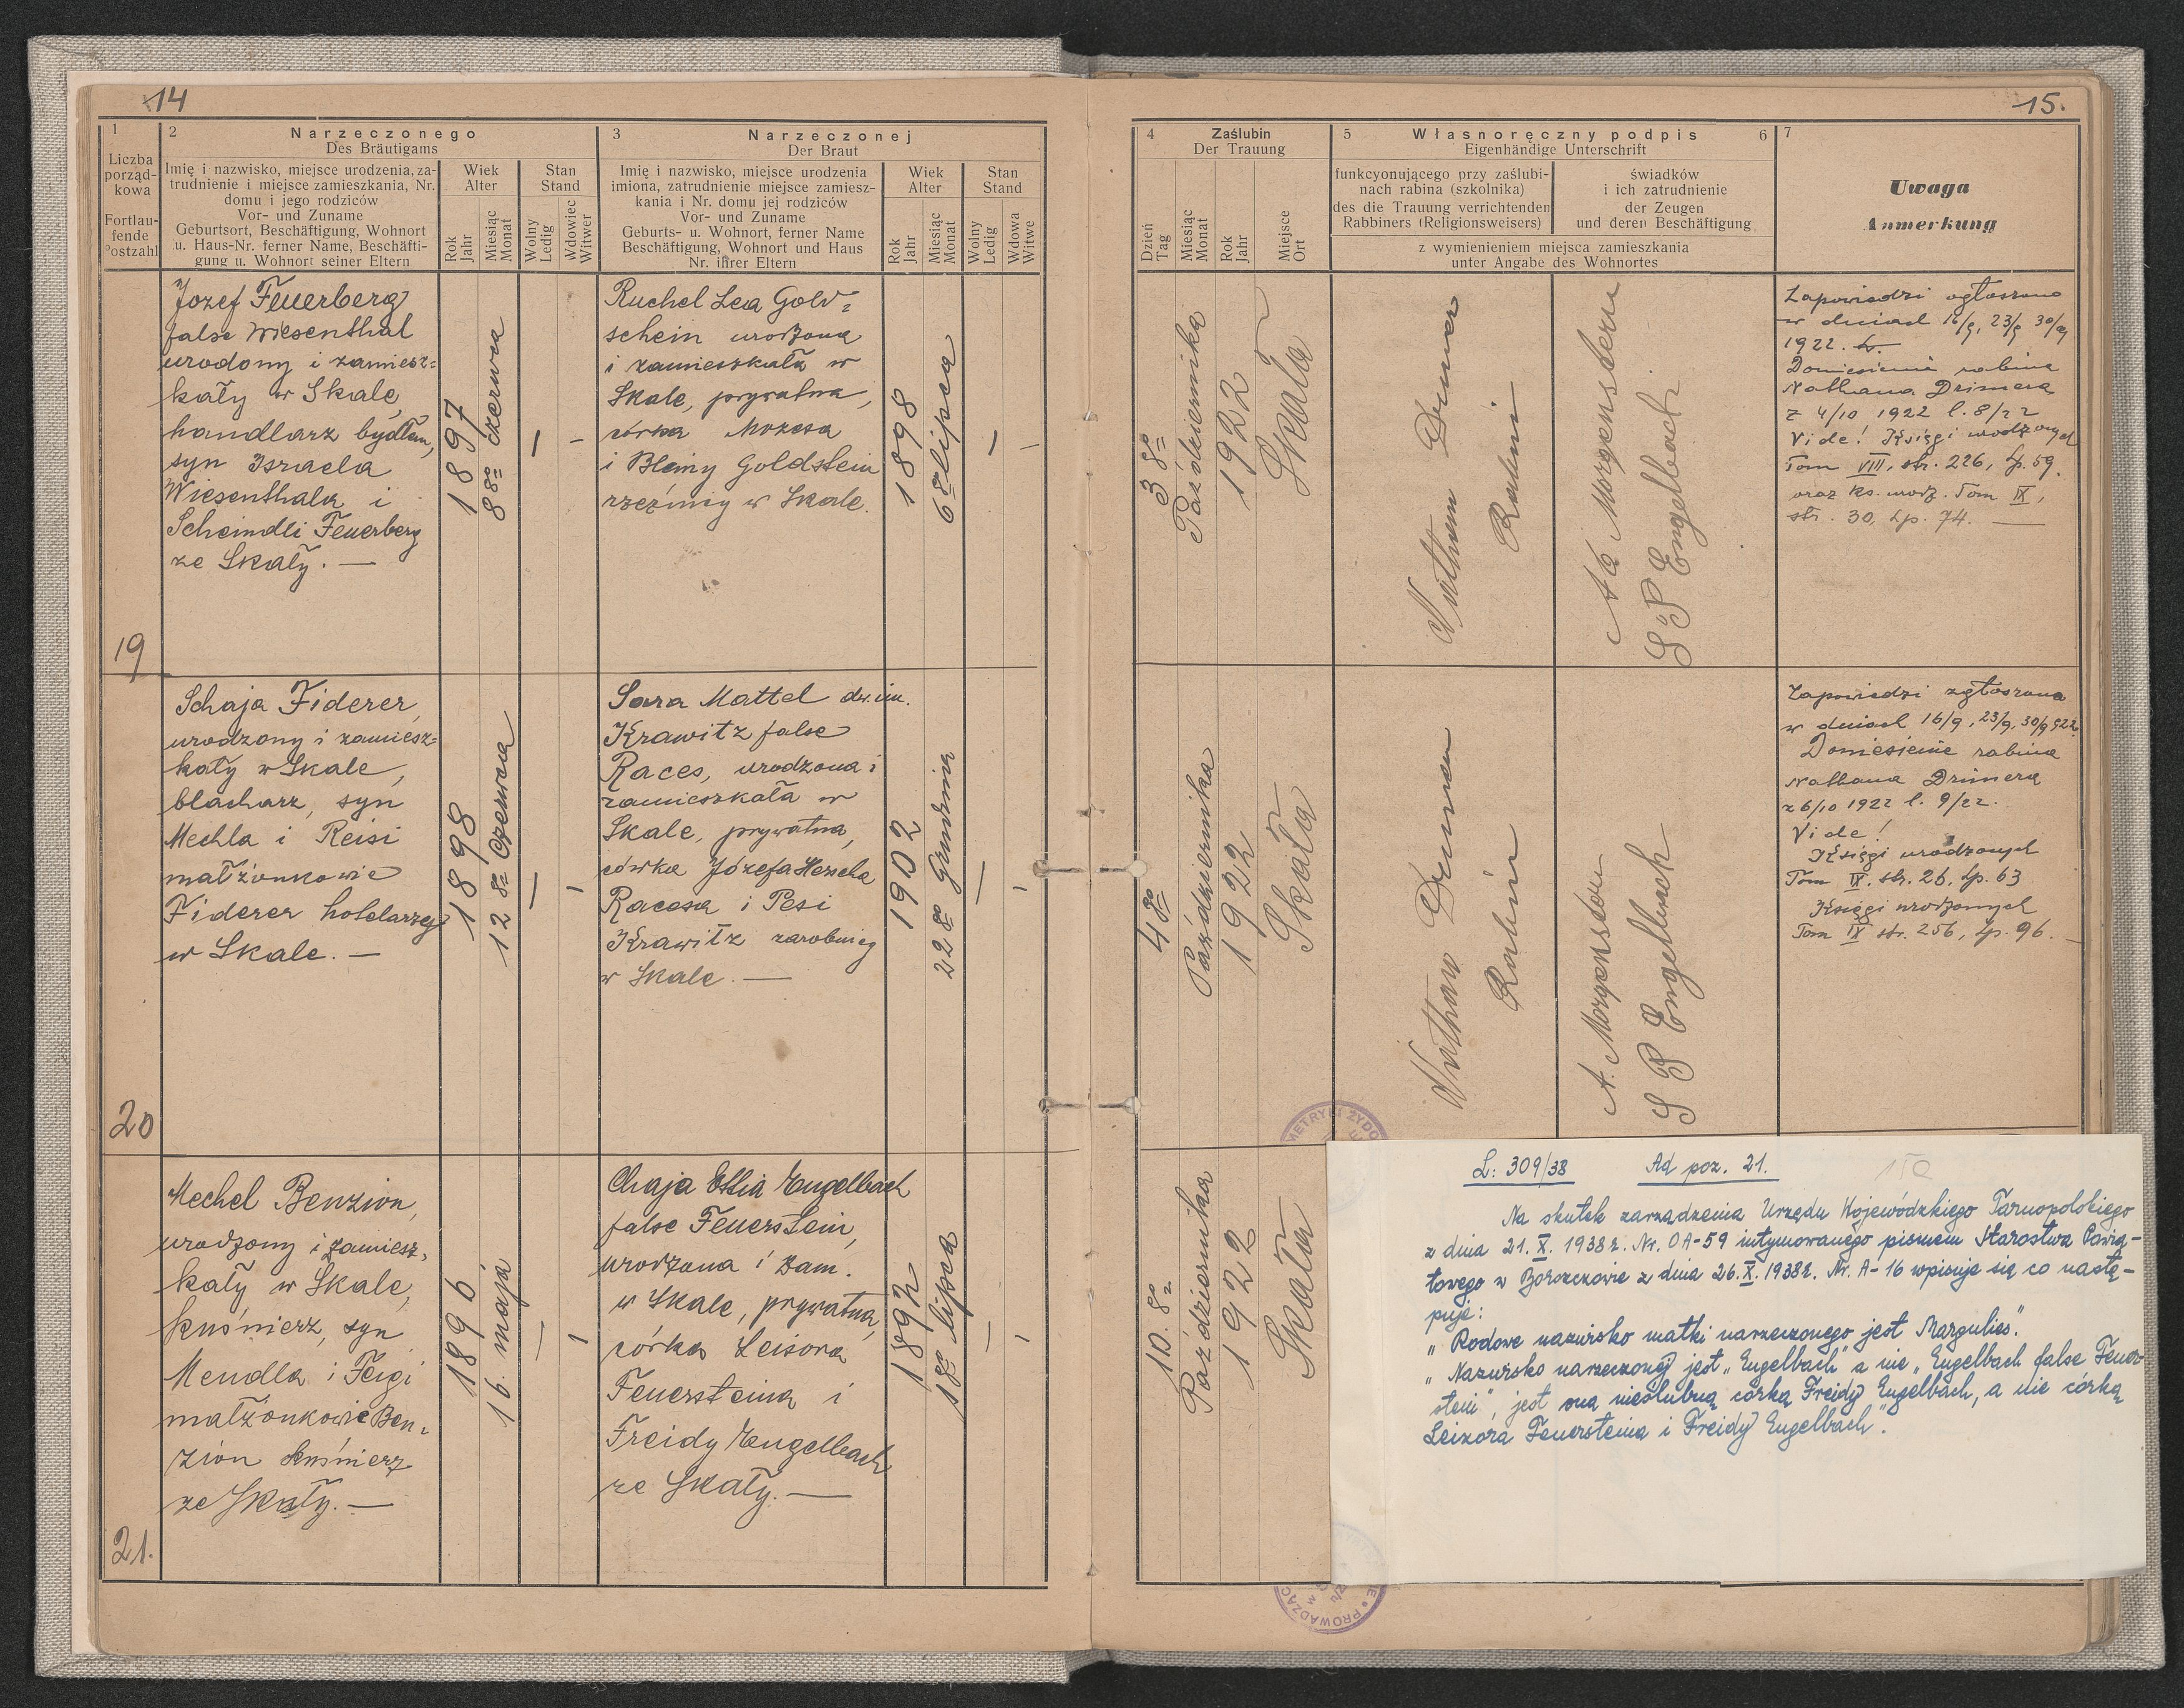 14
1
Liczba
porząd-
kowa
Fortlau-
fende
Postzahl
2
Narzeczonego
Des Bräutigams
Imię i nazwisko, miejsce urodzenia, za-
trudnienie i miejsce zamieszkania, Nr.
domu i jego rodziców
Vor- und Zuname
Geburtsort, Beschäftigung, Wohnort
u. Haus-Nr. ferner Name, Beschäfti-
gung u. Wohnort seiner Eltern
Wiek
Alter
Rok
Jahr
Miesiąc
Monat
Stan
Stand
Wolny
Ledig
Wdowiec
Witwer
3
Narzeczonej
Der Braut
Imię i nazwisko, miejsce urodzenia
imiona, zatrudnienie miejsce zamiesz-
kania i Nr. domu jej rodziców
Vor- und Zuname
Geburts- u. Wohnort, ferner Name
Beschäftigung, Wohnort und Haus
Nr. ihrer Eltern
Wiek
Alter
Rok
Jahr
Miesiąc
Monat
Stan
Stand
Wolny
Ledig
Wdowa
Witwe
19
Jozef Feuerberg
false Wiesenthal
urodony i zamiesz=
kały w Skale,
handlarz bydłem,
syn Israela
Wiesenthala i
Scheindli Feuerberg
ze Skały. —
1897
8 go czerwca
Ruchel Lea Gold=
schein urodzona
i zamieszkała w
Skale, prywatna,
córka Mozesa
i Bleiny Goldstein
rzeźnicy w Skale.
1898
6 go lipca
20
Schaja Fiderer,
urodzony i zamiesz=
kały w Skale,
blacharz, syn
Mechla i Reisi
małżonkowie
Fiderer hotelarzy
w Skale. —
1898
12 go Czerwca
Sara Mattel dw. im.
Krawitz false
Races, urodzona i
zamieszkała w
Skale, prywatna,
córka Józefa Herscha
Racesa i Pesi
Krawitz zarobnicy
w Skale. —
1902
22 go Grudnia
21.
Mechel Benzion,
urodzony i zamiesz=
kały w Skale,
kuśnierz, syn
Mendla i Feigi
małżonkowie Ben=
zion kuśnierz
ze Skały. —
1896
16. maja
Chaja Ettia Engelbach
false Feuerstein,
urodzona i zam.
w Skale, prywatna,
córka Leisora
Feuersteina i
Freidy Engelbach
ze Skały. —
1892
18 go lipca
15.
4
Zaślubin
Der Trauung
Dzień
Tag
Miesiąc
Monat
Rok
Jahr
Miejsce
Ort
5
Własnoręczny podpis
6
Eigenhändige Unterschrift
funkcyonującego przy zaślubi-
nach rabina (szkolnika)
des die Trauung verrichtenden
Rabbiners (Religionsweisers)
świadków
i ich zatrudnienie
der Zeugen
und deren Beschäftigung
z wymienieniem miejsca zamieszkania
unter Angabe des Wohnortes
7
Uwaga
Anmerkung
3 go
Października
1922
Skała
Nathan Drimer
Rabin
A Morgenstern
S B Engelbach
Zapowiedzi ogłoszono
w dniach 16/9, 23/9 30/9
1922.
Doniesienie rabina
Nathana Drimera
z 4/10 1922 l. 8/22
Vide! Księgi urodzonych
Tom VIII, str. 226, Lp. 59.
oraz ks. urodz. Tom IX,
str. 30, Lp. 74. —
4 go
Października
1922
Skała
Nathan Drimer
Rabin
A. Morgenstern
S B Engelbach
Zapowiedzi zgłoszona
w dniach 16/9, 23/9, 30/9 922.
Doniesienie rabina
Nathana Drimera
z 6/10 1922 l. 9/22.
Vide!
Księgi urodzonych
Tom IX. str. 26, Lp. 63
Księgi urodzonych
Tom IX str. 256, Lp. 96. —
10. go
Października
1922
Skała
L: 309/38 Ad poz. 21.
Na skutek zarządzenia Urzędu Wojewódzkiego Tarnopolskiego
z dnia 21. X. 1938 r. Nr. OA-59 intymowanego pismem Starostwa Powia-
towego w Borszczowie z dnia 26. X. 1938 r. Nr. A-16 wpisuje się co nastę-
puje:
„Rodowe nazwisko matki narzeczonego jest Margulies."
„Nazwisko narzeczonej jest „Engelbach" a nie „Engelbach false Feuer-
stein", jest ona nieślubną córką Freidy Engelbach, a nie córką
Leizora Feuersteina i Freidy Engelbach".